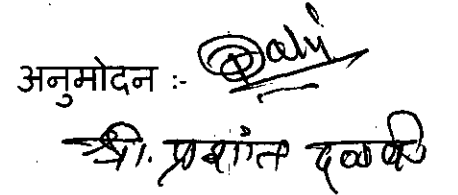 अनुमोदन :-
श्री. प्रशांत दळवी